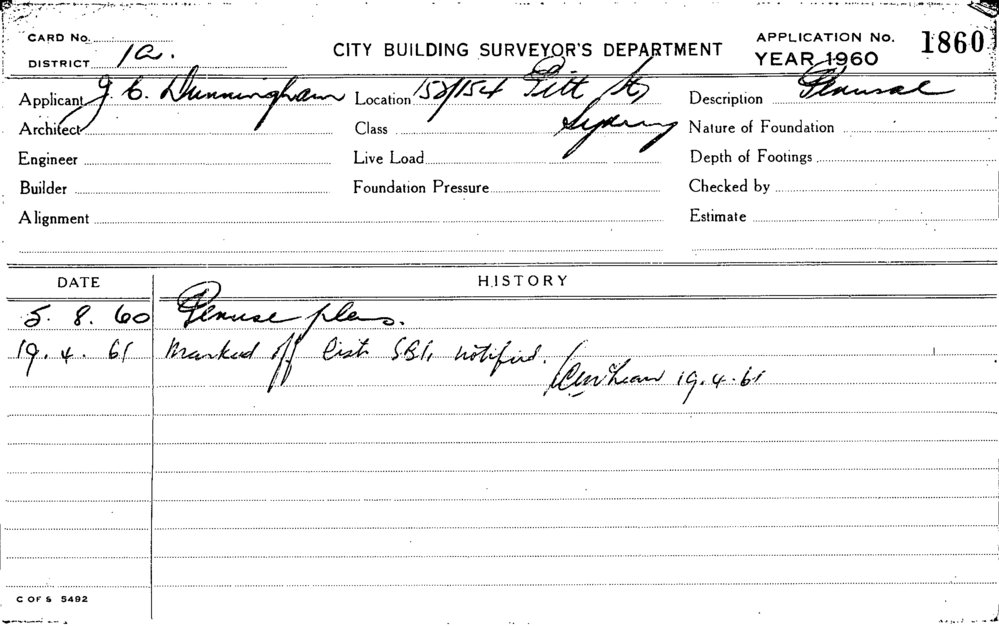 CARD No.
DISTRICT 1a.
CITY BUILDING SURVEYOR'S DEPARTMENT
APPLICATION No. 1860
YEAR 1960
Applicant J. C. Dunningham
Location 152/154 Pitt St,
Sydney
Description Perusal
Architect
Class
Nature of Foundation
Engineer
Live Load
Depth of Footings
Builder
Foundation Pressure
Checked by
Alignment
Estimate
DATE HISTORY
5. 8. 60 Peruse plans.
19. 4. 61 Marked off list notified.
19. 4. 61
C OF S 5492